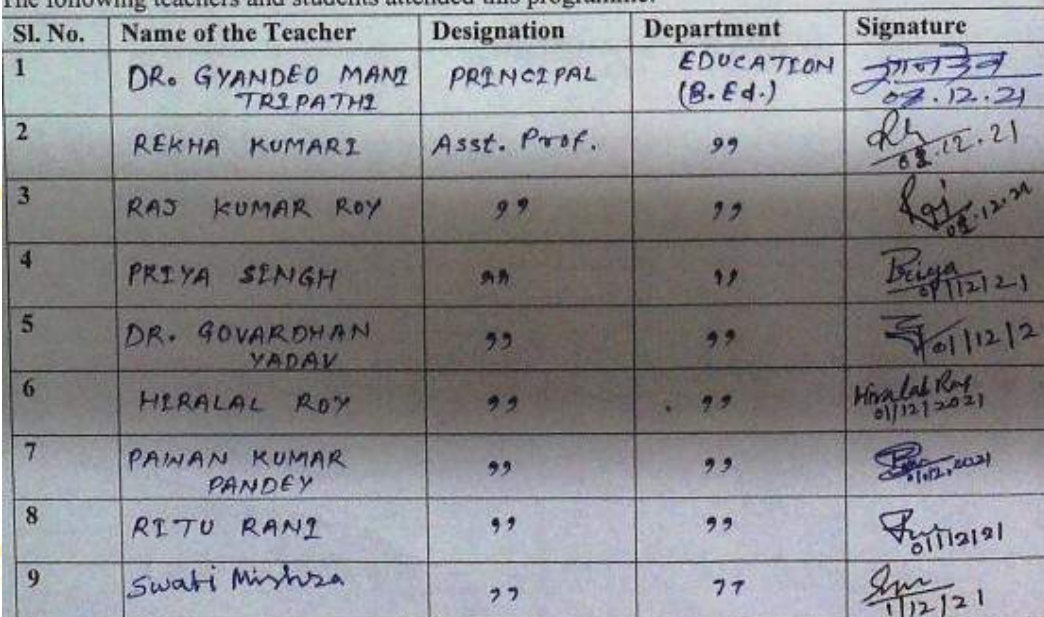 The following teachers and students attended this programme.
Sl. No. Name of the Teacher Designation Department Signature
1 DR. GYANDEO MANI TRIPATHI PRINCIPAL EDUCATION (B.Ed.) ज्ञानदेव 01.12.21
2 REKHA KUMARI Asst. Prof. " 01.12.21
3 RAJ KUMAR ROY " " Raj 01.12.21
4 PRIYA SINGH " " Priya 01/12/21
5 DR. GOVARDHAN YADAV " " 01/12/2
6 HIRALAL ROY " " Hiralal Roy 01/12/2021
7 PAWAN KUMAR PANDEY " " 01.12.2021
8 RITU RANI " " 01/12/21
9 Swati Mishra " " 1/12/21